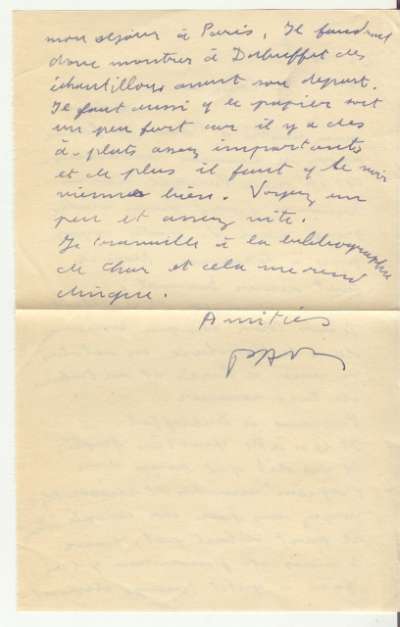 mon séjour à Paris. Il faudrait
donc montrer à Dubuffet des
échantillons avant son départ.
Il faut aussi q le papier soit
un peu fort car il y a des
à-plats assez importants
et de plus il faut q le noir
vienne bien. Voyez un
peu et assez vite.
Je travaille à la bibliographie
de Char et cela me rend
dingue.
Amitiés
PAB